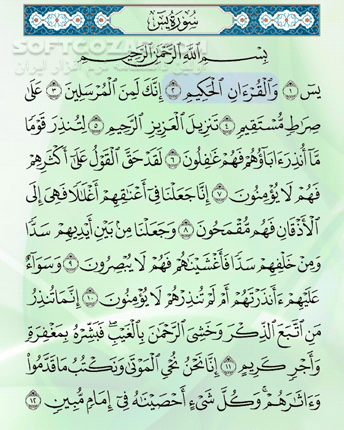 سُورَةُ يسٓ
SOFTGOZAR.COM
بِسْمِ ٱللَّهِ ٱلرَّحْمَٰنِ ٱلرَّحِيمِ
يسٓ ١ وَٱلْقُرْءَانِ ٱلْحَكِيمِ ٢ إِنَّكَ لَمِنَ ٱلْمُرْسَلِينَ ٣ عَلَىٰ
صِرَٰطٍ مُّسْتَقِيمٍ ٤ تَنزِيلَ ٱلْعَزِيزِ ٱلرَّحِيمِ ٥ لِتُنذِرَ قَوْمًا
مَّآ أُنذِرَ ءَابَآؤُهُمْ فَهُمْ غَٰفِلُونَ ٦ لَقَدْ حَقَّ ٱلْقَوْلُ عَلَىٰٓ أَكْثَرِهِمْ
فَهُمْ لَا يُؤْمِنُونَ ٧ إِنَّا جَعَلْنَا فِىٓ أَعْنَٰقِهِمْ أَغْلَٰلًا فَهِىَ إِلَى
ٱلْأَذْقَانِ فَهُم مُّقْمَحُونَ ٨ وَجَعَلْنَا مِنۢ بَيْنِ أَيْدِيهِمْ سَدًّا
وَمِنْ خَلْفِهِمْ سَدًّا فَأَغْشَيْنَٰهُمْ فَهُمْ لَا يُبْصِرُونَ ٩ وَسَوَآءٌ
عَلَيْهِمْ ءَأَنذَرْتَهُمْ أَمْ لَمْ تُنذِرْهُمْ لَا يُؤْمِنُونَ ١٠ إِنَّمَا تُنذِرُ
مَنِ ٱتَّبَعَ ٱلذِّكْرَ وَخَشِىَ ٱلرَّحْمَٰنَ بِٱلْغَيْبِ ۖ فَبَشِّرْهُ بِمَغْفِرَةٍ
وَأَجْرٍ كَرِيمٍ ١١ إِنَّا نَحْنُ نُحْىِ ٱلْمَوْتَىٰ وَنَكْتُبُ مَا قَدَّمُوا۟
وَءَاثَٰرَهُمْ ۚ وَكُلَّ شَىْءٍ أَحْصَيْنَٰهُ فِىٓ إِمَامٍ مُّبِينٍ ١٢